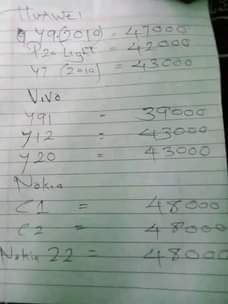 HUAWEI
Y9 (2019) = 47000
P20 Light = 42000
Y7 (2019) = 43000
Vivo
Y91 = 39000
Y12 = 43000
Y20 = 43000
Nokia
C1 = 48000
C2 = 48000
Nokia 22 = 48000